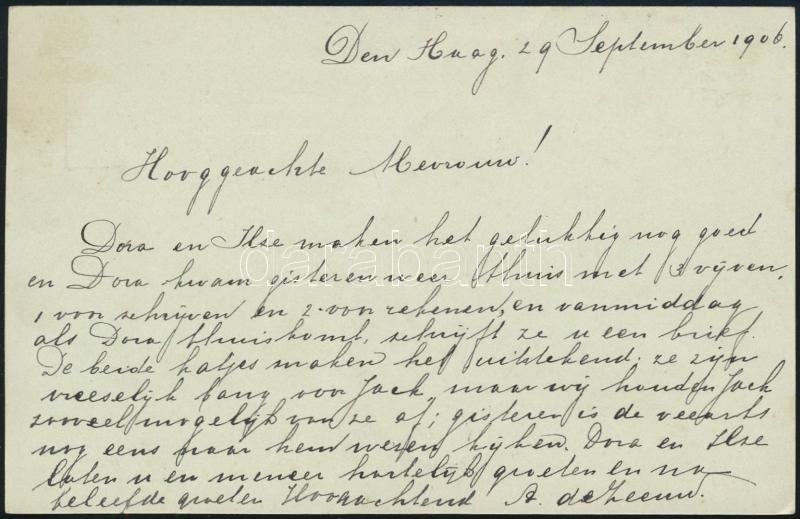 Den Haag. 29 September 1906.
Hooggeachte Mevrouw!
Dora en Ilse maken het gelukkig nog goed
en Dora kwam gisteren weer thuis met 3 vijven,
1 voor schrijven en 2 voor rekenen, en vanmiddag
als Dora thuiskomt, schrijft ze u een brief.
De beide katjes maken het uitstekend; ze zijn
vreeselijk bang voor Jack, maar wij houden Jack
zooveel mogelijk van ze af; gisteren is de veearts
nog eens naar hem wezen kijken. Dora en Ilse
laten u en meneer hartelijk groeten en na
beleefde groeten Hoogachtend A. de Zeeuw.
darabanth